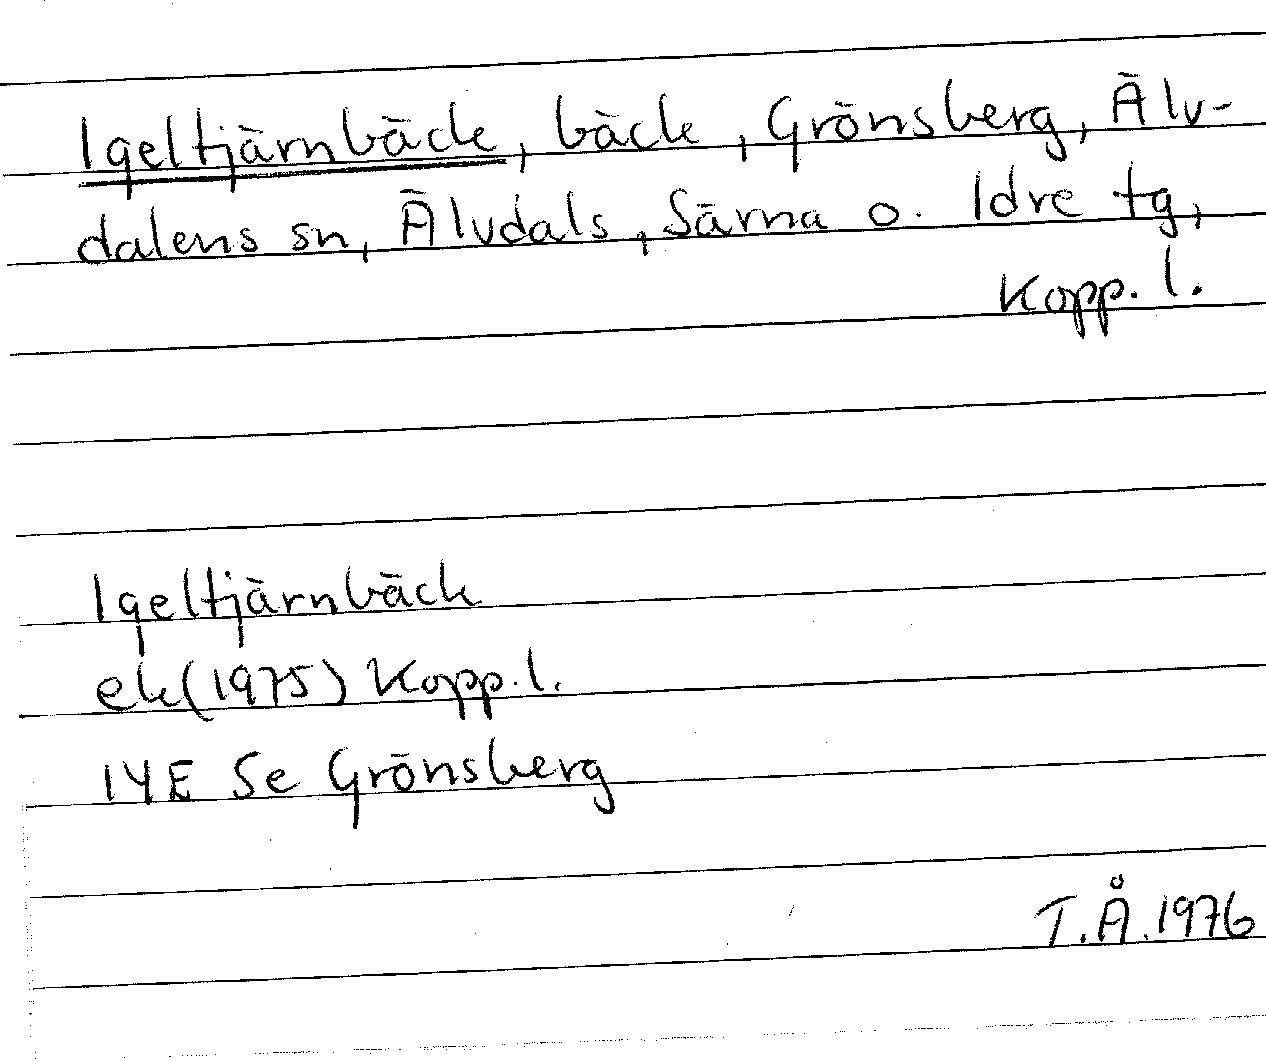 Igeltjärnbäck, bäck, Grönsberg, Älv-
dalens sn, Älvdals, Särna o. Idre tg,
Kopp. l.
Igeltjärnbäck
ek(1975) Kopp. l.
14E Se Grönsberg
T.Å.1976